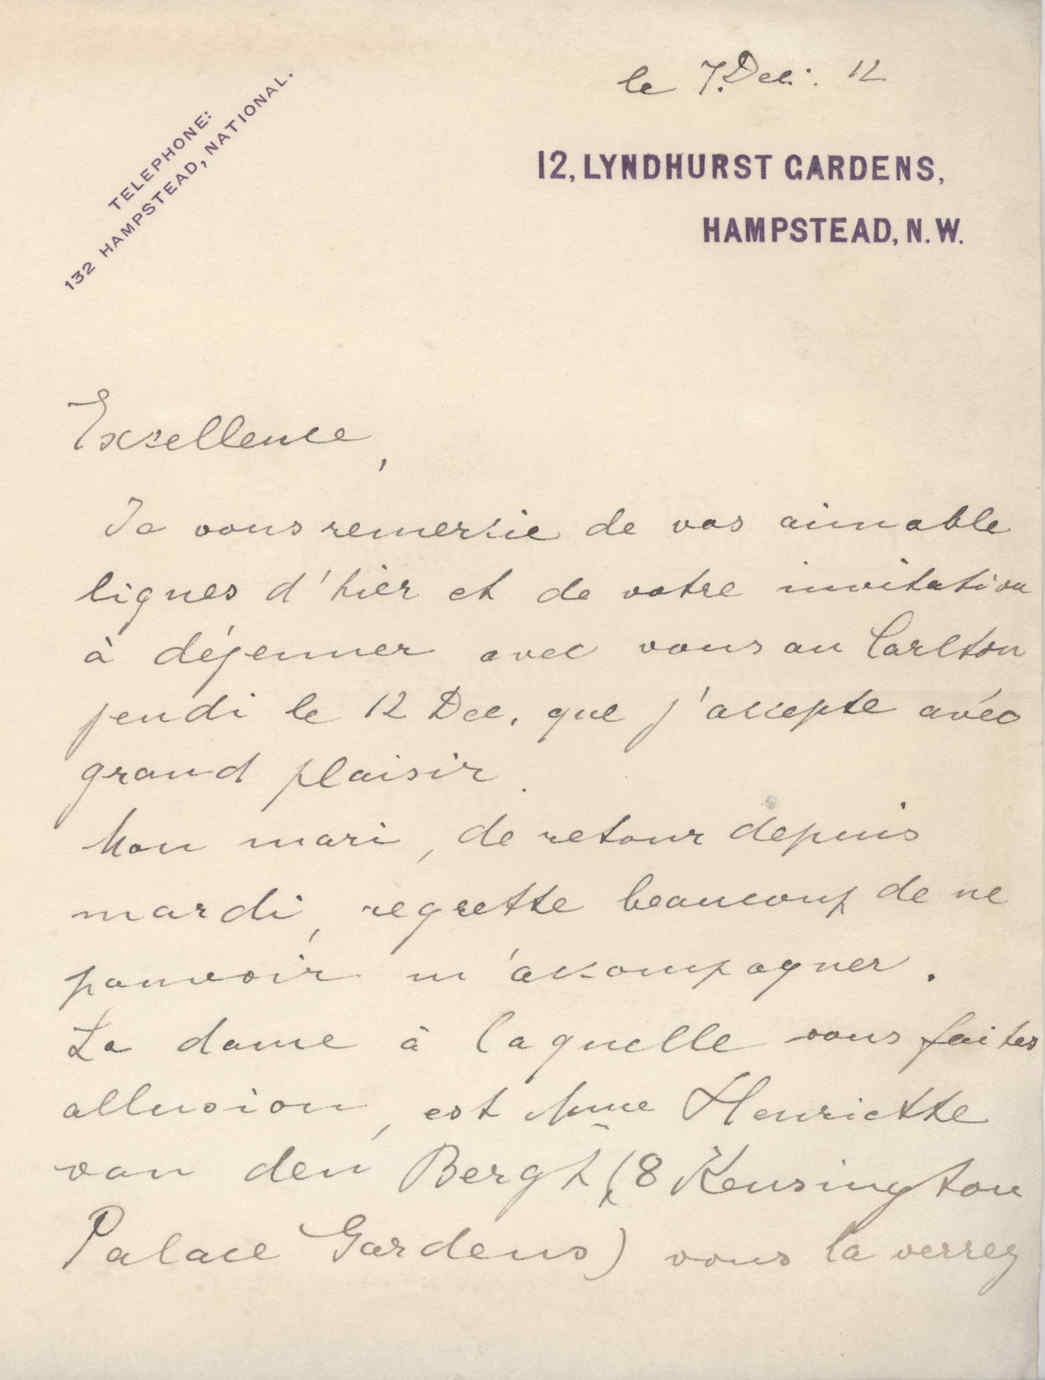 le 7. Dec. 12
TELEPHONE:
132 HAMPSTEAD, NATIONAL.
12, LYNDHURST GARDENS,
HAMPSTEAD, N.W.
Excellence,
Je vous remercie de vos aimable
lignes d'hier et de votre invitation
à déjeuner avec vous au Carlton
jeudi le 12 Dec. que j'accepte avéc
grand plaisir.
Mon mari, de retour depuis
mardi, regrette beaucoup de ne
pouvoir m'accompagner.
La dame à laquelle vous faites
allusion, est Mme Henriette
van den Bergh (8 Kensington
Palace Gardens) vous la verrez